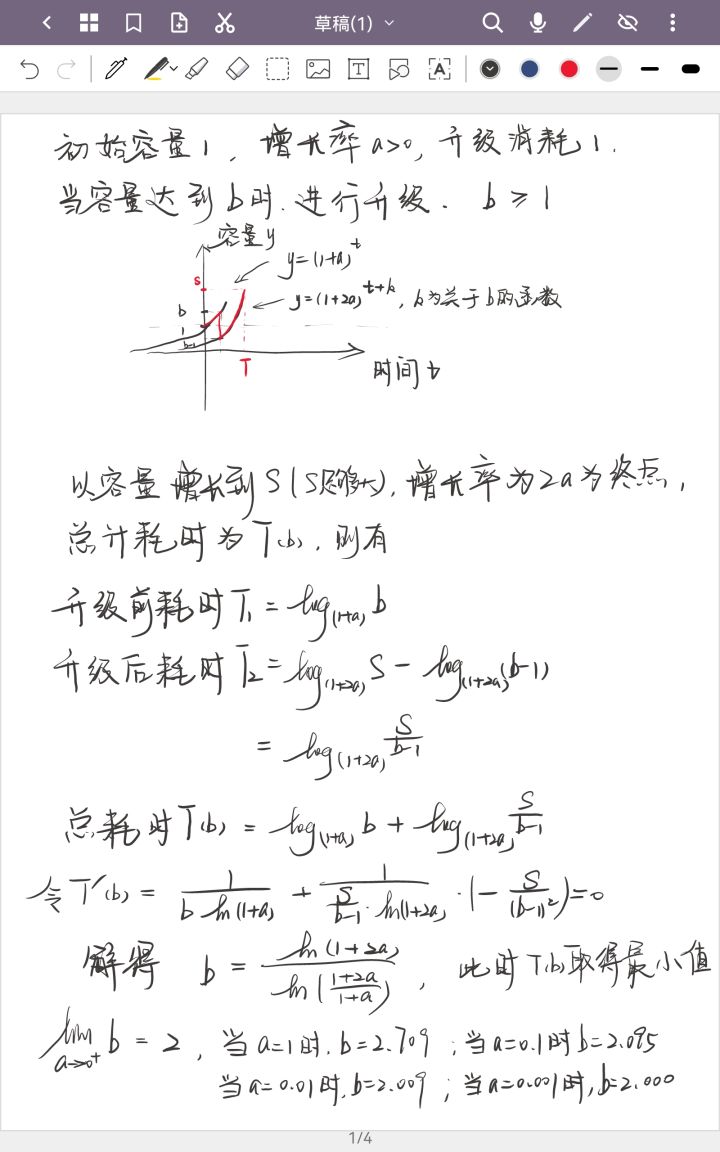 草稿(1)
初始容量1，增长率a>0，升级消耗1.
当容量达到b时.进行升级. b≥1
容量y
y=(1+a)^t
y=(1+2a)^{t+k}，k为关于b的函数
S
b
1
b-1
T
时间t
以容量增长到S(S足够大)，增长率为2a为终点，
总计耗时为T(b)，则有
升级前耗时T₁ = log_{(1+a)} b
升级后耗时T₂ = log_{(1+2a)} S − log_{(1+2a)} (b-1)
= log_{(1+2a)} \frac{S}{b-1}
总耗时T(b) = log_{(1+a)} b + log_{(1+2a)} \frac{S}{b-1}
令T'(b) = \frac{1}{b·ln(1+a)} + \frac{1}{\frac{S}{b-1}·ln(1+2a)}·(-\frac{S}{(b-1)^2})=0
解得 b = \frac{ln(1+2a)}{ln(\frac{1+2a}{1+a})}，此时T(b)取得最小值
\lim_{a→0^+} b = 2，当a=1时，b=2.709；当a=0.1时b=2.095
当a=0.01时，b=2.009；当a=0.001时，b=2.000
1/4